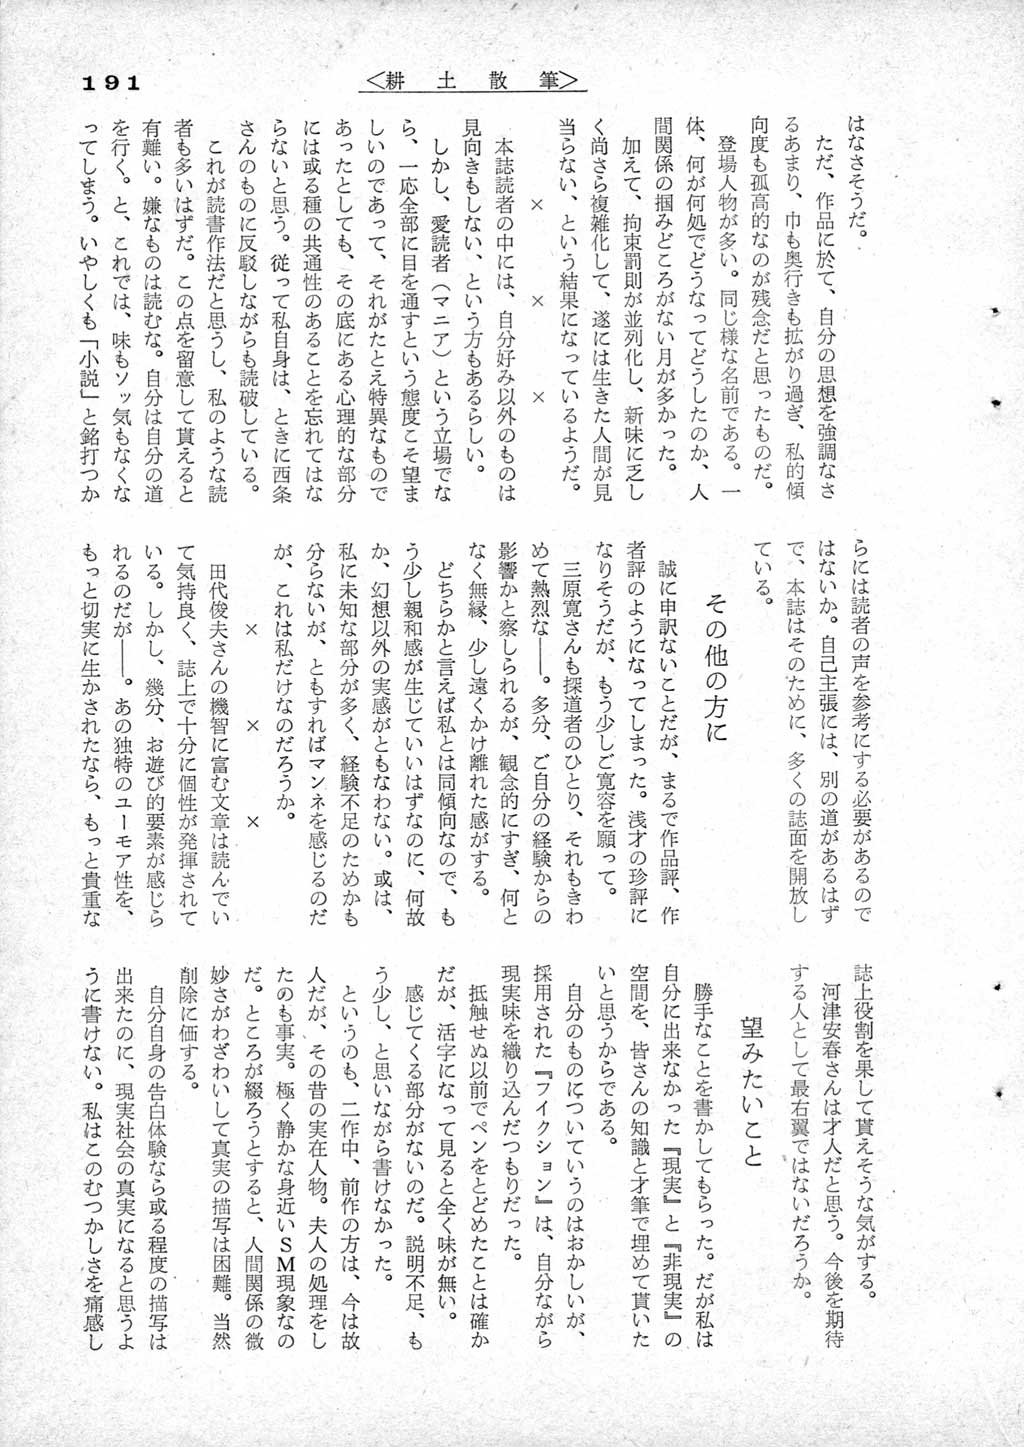 191
＜耕土散筆＞
はなさそうだ。
ただ、作品に於て、自分の思想を強調なさ
るあまり、巾も奥行きも拡がり過ぎ、私的傾
向度も孤高的なのが残念だと思ったものだ。
登場人物が多い。同じ様な名前である。一
体、何が何処でどうなってどうしたのか、人
間関係の掴みどころがない月が多かった。
加えて、拘束罰則が並列化し、新味に乏し
く尚さら複雑化して、遂には生きた人間が見
当らない、という結果になっているようだ。
× × ×
本誌読者の中には、自分好み以外のものは
見向きもしない、という方もあるらしい。
しかし、愛読者（マニア）という立場でな
ら、一応全部に目を通すという態度こそ望ま
しいのであって、それがたとえ特異なもので
あったとしても、その底にある心理的な部分
には或る種の共通性のあることを忘れてはな
らないと思う。従って私自身は、ときに西条
さんのものに反駁しながらも読破している。
これが読書作法だと思うし、私のような読
者も多いはずだ。この点を留意して貰えると
有難い。嫌なものは読むな。自分は自分の道
を行く。と、これでは、味もソッ気もなくな
ってしまう。いやしくも「小説」と銘打つか
らには読者の声を参考にする必要があるので
はないか。自己主張には、別の道があるはず
で、本誌はそのために、多くの誌面を開放し
ている。
その他の方に
誠に申訳ないことだが、まるで作品評、作
者評のようになってしまった。浅才の珍評に
なりそうだが、もう少しご寛容を願って。
三原寛さんも探道者のひとり、それもきわ
めて熱烈な――。多分、ご自分の経験からの
影響かと察しられるが、観念的にすぎ、何と
なく無縁、少し遠くかけ離れた感がする。
どちらかと言えば私とは同傾向なので、も
う少し親和感が生じていいはずなのに、何故
か、幻想以外の実感がともなわない。或は、
私に未知な部分が多く、経験不足のためかも
分らないが、ともすればマンネを感じるのだ
が、これは私だけなのだろうか。
× × ×
田代俊夫さんの機智に富む文章は読んでい
て気持良く、誌上で十分に個性が発揮されて
いる。しかし、幾分、お遊び的要素が感じら
れるのだが――。あの独特のユーモア性を、
もっと切実に生かされたなら、もっと貴重な
誌上役割を果して貰えそうな気がする。
河津安春さんは才人だと思う。今後を期待
する人として最右翼ではないだろうか。
望みたいこと
勝手なことを書かしてもらった。だが私は
自分に出来なかった『現実』と『非現実』の
空間を、皆さんの知識と才筆で埋めて貰いた
いと思うからである。
自分のものについていうのはおかしいが、
採用された『フイクション』は、自分ながら
現実味を織り込んだつもりだった。
抵触せぬ以前でペンをとどめたことは確か
だが、活字になって見ると全く味が無い。
感じてくる部分がないのだ。説明不足、も
う少し、と思いながら書けなかった。
というのも、二作中、前作の方は、今は故
人だが、その昔の実在人物。夫人の処理をし
たのも事実。極く静かな身近いＳＭ現象なの
だ。ところが綴ろうとすると、人間関係の微
妙さがわざわいして真実の描写は困難。当然
削除に価する。
自分自身の告白体験なら或る程度の描写は
出来たのに、現実社会の真実になると思うよ
うに書けない。私はこのむつかしさを痛感し